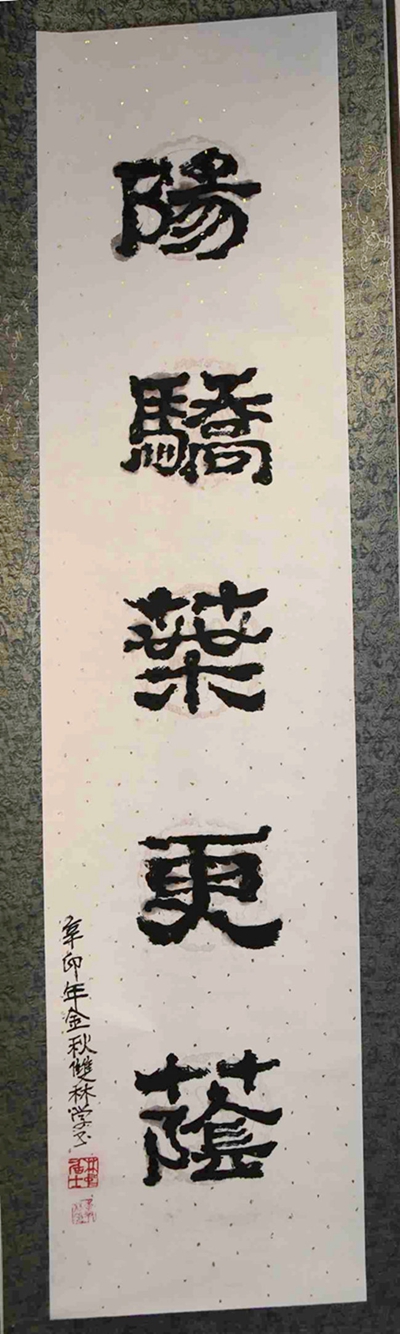 陽驕葉更蔭
辛卯年金秋雙林学子